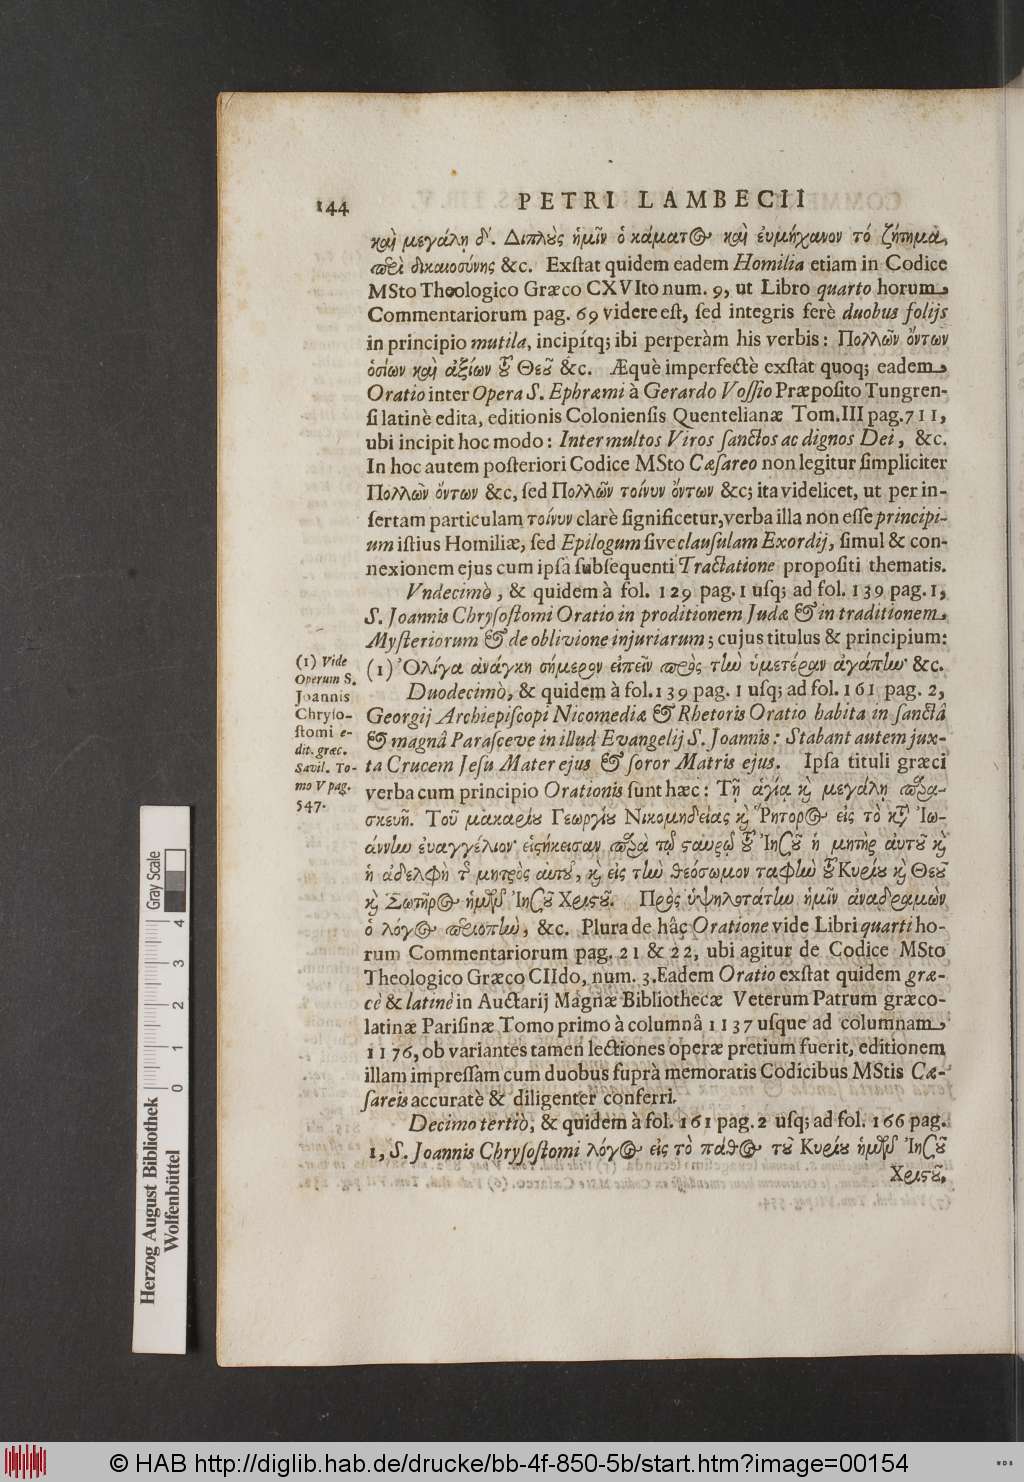 144
PETRI LAMBECII
καὶ μεγάλη δ'. Διπλοῦς ἡμῖν ὁ κάματος καὶ ἐυμήχανον τό ζήτημα,
περὶ δικαιοσύνης &c. Exſtat quidem eadem Homilia etiam in Codice
MSto Theologico Græco CXVIto num. 9, ut Libro quarto horum
Commentariorum pag. 69 videre eſt, ſed integris ferè duobus folijs
in principio mutila, incipítq; ibi perperàm his verbis: Πολλῶν ὄντων
ὁσίων καὶ ἀξίων τοῦ Θεοῦ &c. Æquè imperfectè exſtat quoq; eadem
Oratio inter Opera S. Ephræmi à Gerardo Voſſio Præpoſito Tungren-
ſi latinè edita, editionis Colonienſis Quentelianæ Tom. III pag. 711,
ubi incipit hoc modo: Inter multos Viros ſanctos ac dignos Dei, &c.
In hoc autem poſteriori Codice MSto Cæſareo non legitur ſimpliciter
Πολλῶν ὄντων &c, ſed Πολλῶν τοίνυν ὄντων &c; ita videlicet, ut per in-
ſertam particulam τοίνυν clarè ſignificetur, verba illa non eſſe principi-
um iſtius Homiliæ, ſed Epilogum ſive clauſulam Exordij, ſimul & con-
nexionem ejus cum ipſâ ſubſequenti Tractatione propoſiti thematis.
Vndecimò, & quidem à fol. 129 pag. 1 uſq; ad fol. 139 pag. 1,
S. Joannis Chryſoſtomi Oratio in proditionem Judæ & in traditionem
Myſteriorum & de oblivione injuriarum; cujus titulus & principium:
(1) Ὀλίγα ἀνάγκη σήμερον εἰπεῖν πρὸς τὴν ὑμετέραν ἀγάπην &c.
Duodecimò, & quidem à fol. 139 pag. 1 uſq; ad fol. 161 pag. 2,
Georgij Archiepiſcopi Nicomediæ & Rhetoris Oratio habita in ſanctâ
& magnâ Paraſceve in illud Evangelij S. Joannis: Stabant autem jux-
ta Crucem Jeſu Mater ejus & ſoror Matris ejus. Ipſa tituli græci
verba cum principio Orationis ſunt hæc: Τῇ ἁγίᾳ κὴ μεγάλη παρα-
σκευῇ. Τοῦ μακαρίου Γεωργίου Νικομηδείας κὴ Ῥήτορος εἰς τὸ κτ' Ἰω-
άννην ἐυαγγέλιον· εἱςήκεισαν παρὰ τῷ σταυρῷ τοῦ Ἰησοῦ ἡ μητὴρ ἀυτοῦ κὴ
ἡ ἀδελφὴ τῆς μητρὸς ἀυτοῦ, κὴ εἰς τὴν θεόσωμον ταφὴν τοῦ Κυρίου κὴ Θεοῦ
κὴ Σωτῆρος ἡμῶν Ἰησοῦ Χριστοῦ. Πρὸς ὑψηλοτάτην ἡμῖν ἀναδραμὼν
ὁ λόγος περιοπὴν, &c. Plura de hâc Oratione vide Libri quarti ho-
rum Commentariorum pag. 21 & 22, ubi agitur de Codice MSto
Theologico Græco CIIdo, num. 3. Eadem Oratio exſtat quidem græ-
cè & latinè in Auctarij Magnæ Bibliothecæ Veterum Patrum græco-
latinæ Pariſinæ Tomo primo à columnâ 1137 uſque ad columnam
1176, ob variantes tamen lectiones operæ pretium fuerit, editionem
illam impreſſam cum duobus ſuprà memoratis Codicibus MStis Cæ-
ſareis accuratè & diligenter conferri.
Decimo tertiò, & quidem à fol. 161 pag. 2 uſq; ad fol. 166 pag.
1, S. Joannis Chryſoſtomi λόγος εἰς τὸ πάθος τοῦ Κυρίου ἡμῶν Ἰησοῦ
Χριστοῦ.
(1) Vide
Operum S.
Joannis
Chryſo-
ſtomi e-
dit. græc.
Savil. To-
mo V pag.
547.
Gray Scale
0 1 2 3 4
Herzog August Bibliothek
Wolfenbüttel
© HAB http://diglib.hab.de/drucke/bb-4f-850-5b/start.htm?image=00154